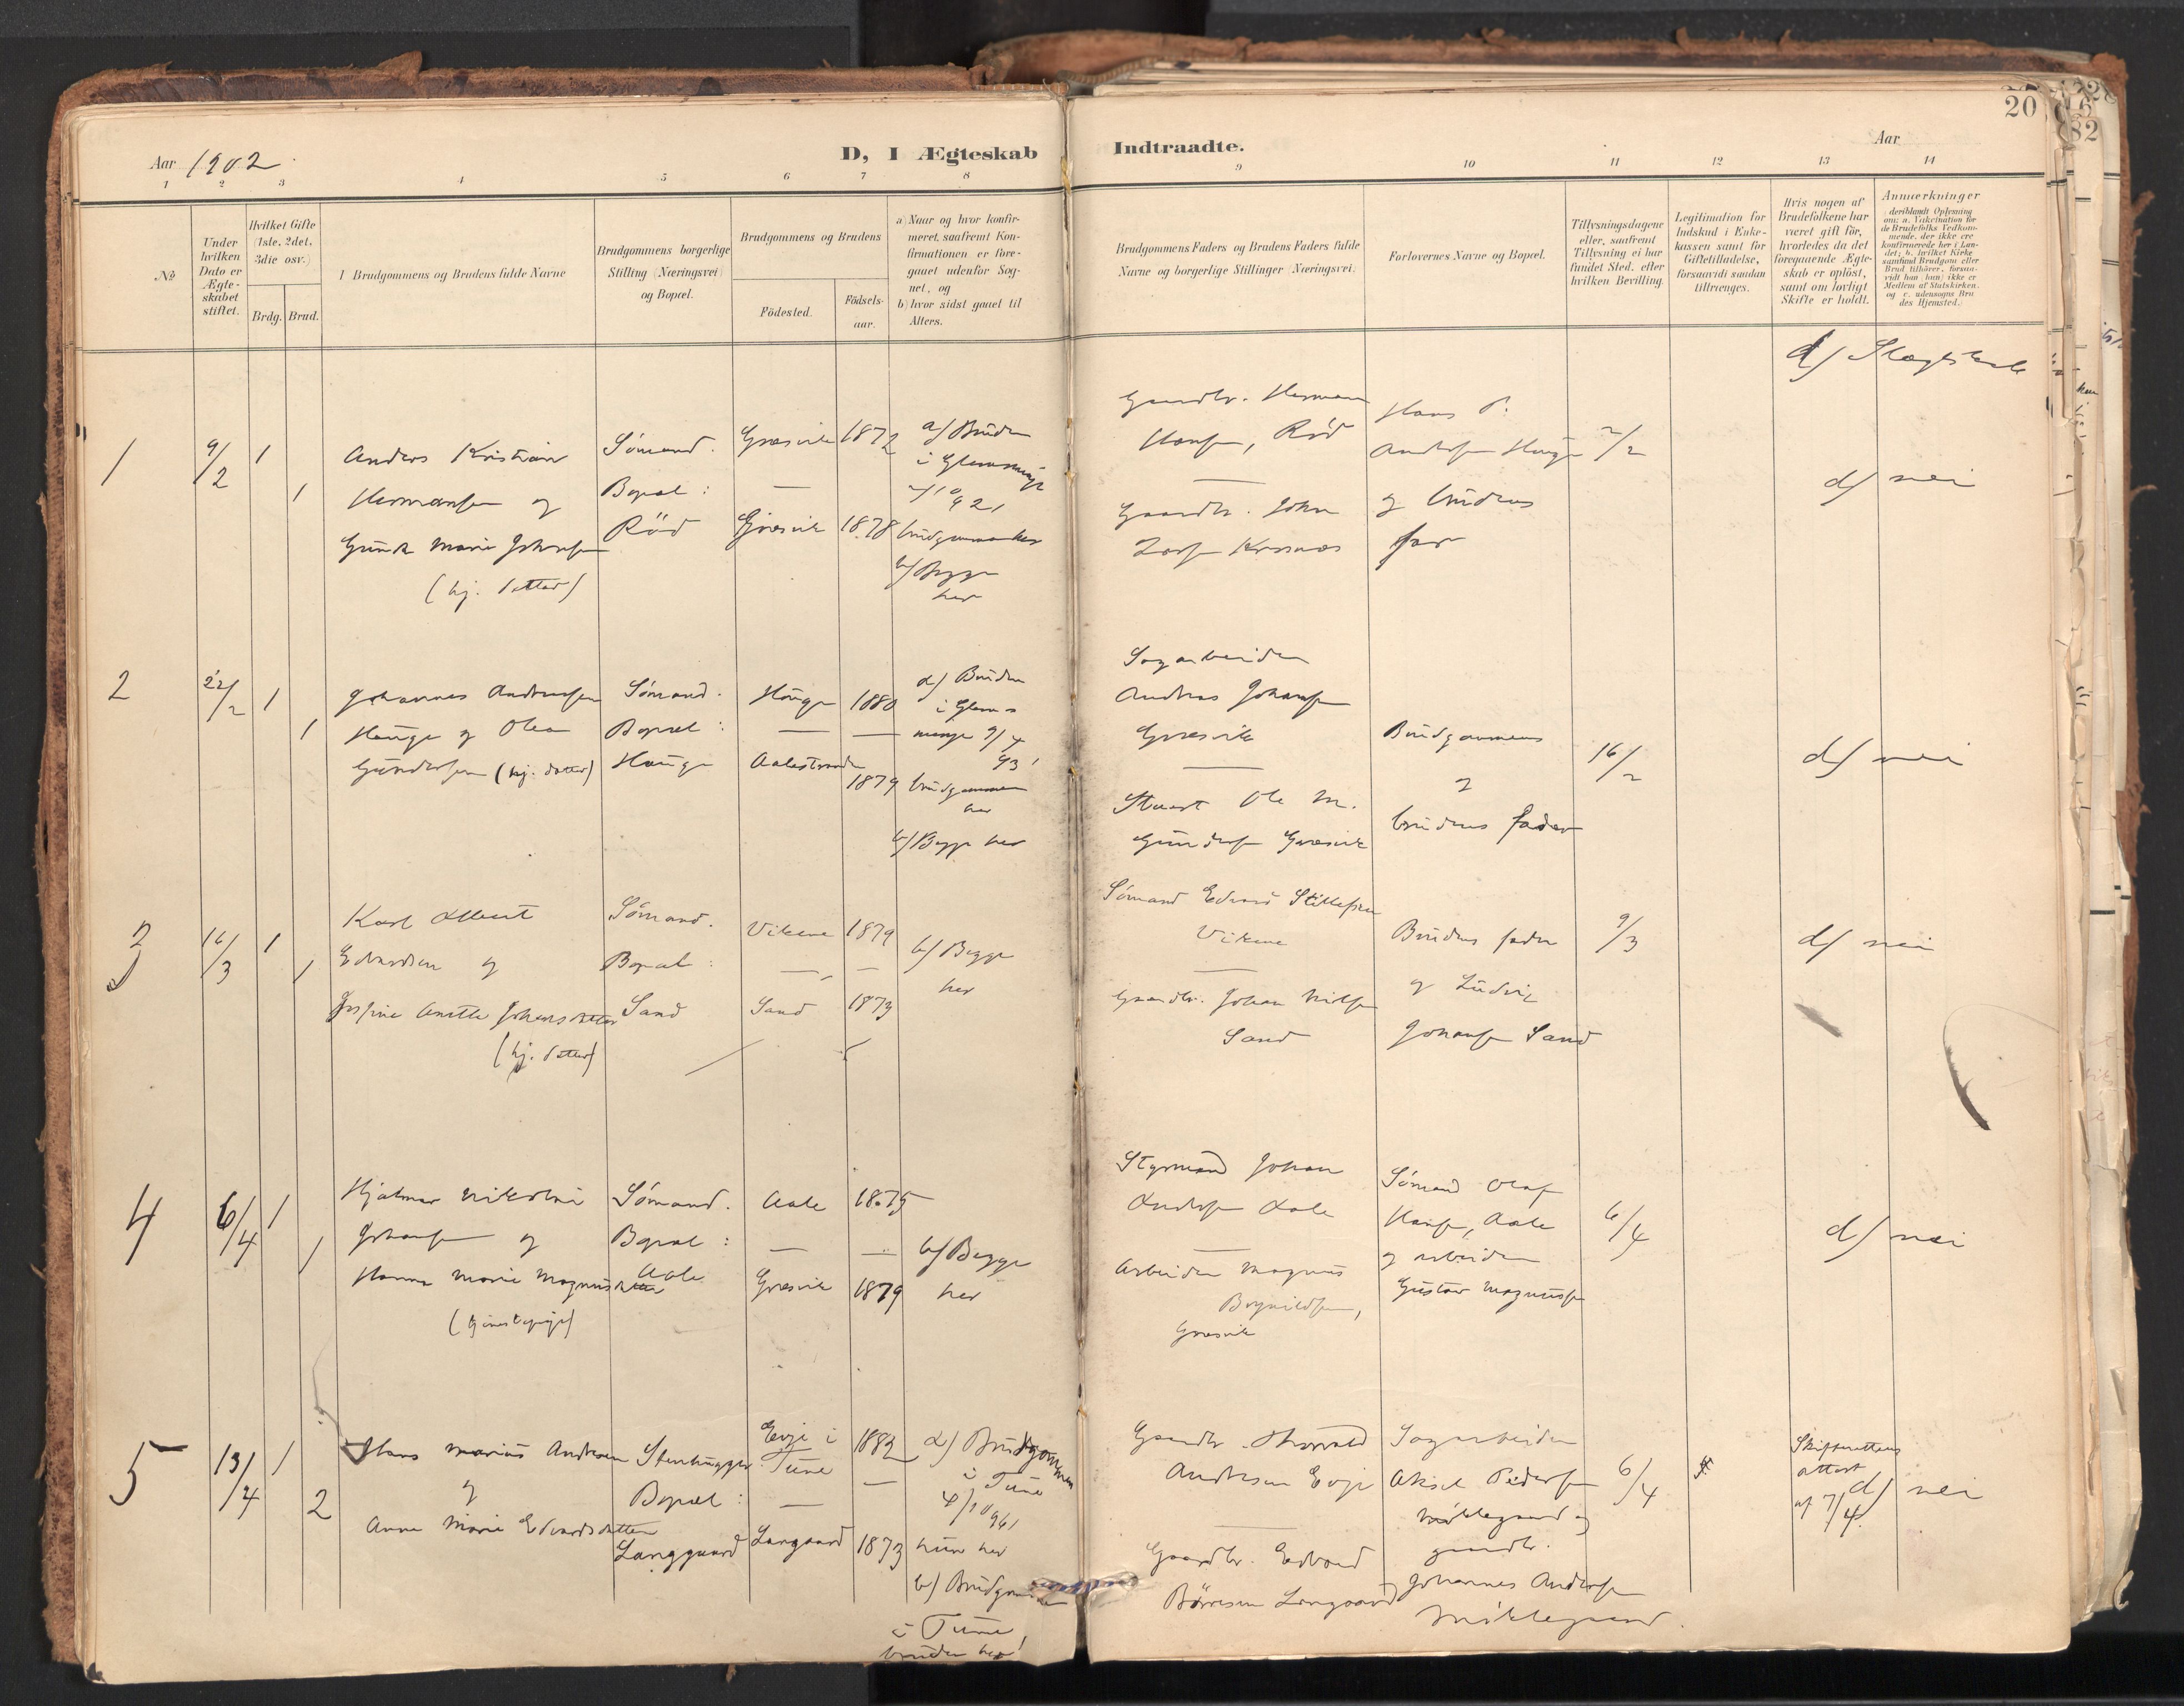 20
Aar 1902
D, I Ægteskab
Indtraadte.
Aar
1 2 3 4 5 6 7 8
9 10 11 12 13 14
№
Under
hvilken
Dato er
Ægte-
skabet
stiftet.
Hvilket Gifte
(1ste, 2det,
3die osv.)
Brdg. Brud.
Brudgommens og Brudens fulde Navne
Brudgommens borgerlige
Stilling (Næringsvei)
og Bopæl.
Brudgommens og Brudens
Födested.
Födsels-
aar.
a) Naar og hvor konfir-
meret, saafremt Kon-
firmationen er fore-
gaaet udenfor Sog-
net, og
b) hvor sidst gaaet til
Alters.
Brudgommens Faders og Brudens Faders fulde
Navne og borgerlige Stillinger (Næringsvei).
Forlovernes Navne og Bopæl.
Tillysningsdagene
eller, saafremt
Tillysning ei har
fundet Sted, efter
hvilken Bevilling.
Legitimation for
Indskud i Enke-
kassen samt for
Giftetilladelse,
forsaavidt saadan
tiltrænges.
Hvis nogen af
Brudefolkene har
været gift før,
hvorledes da det
foregaaende Ægte-
skab er opløst,
samt om lovligt
Skifte er holdt.
Anmærkninger
(deriblandt Oplysning
om: a. Vakcination for
de Brudefolks Vedkom-
mende, der ikke ere
konfirmerede her i Lan-
det; b. hvilket Kirke-
samfund Brudgom eller
Brud tilhører, forsaa-
vidt han (hun) ikke er
Medlem af Statskirken,
og c. udensogns Bru-
des Hjemsted.)
d) Slægtskab
1
9/2
1
1
Anders Kristian
Hermansen og
Gunda Marie Johnsen
(hj. datter)
Sømand.
Bopæl:
Rød
Græsvik 1872
Græsvik 1878
a) Bruden
i Glemminge
2/10
92,
brudgommen her
b) Begge
her
Gaardbr. Herman
Hansen, Rød
Gaardbr. John
Hans P.
Andersen Hauge
og brudens
far
2/2
d) nei
2
22/2
1
1
Johannes Andreassen
Hauge og Olea
Gundersen (hj. datter)
Sømand.
Bopæl:
Hauge
Hauge 1880
Aalestranden
1879
a) Bruden
i Glem-
minge 9/4
93,
brudgommen
her
b) Begge her
Sagarbeider
Andreas Johansen
Græsvik
Ole M.
Gundersen Græsvik
Brudgommens
og
brudens fader
16/2
d) nei
3
16/3
1
1
Karl Albert
Edvardsen og
Josfine Anette Johansdatter
(hj. datter)
Sømand.
Bopæl:
Sand
Vikene 1879
Sand 1873
b) Begge
her
Sømand Edvard
Vikene
Gaardbr. Johan Nilsen
Sand
Brudens fader
og Ludvig
Johansen Sand
9/3
d) nei
4
6/4
1
1
Hjalmar Nikolai
Johansen og
Hanna Marie Magnusdatter
(tjenestepige)
Sømand.
Bopæl:
Aale
Aale 1875
Græsvik 1879
b) Begge
her
Styrmand Johan
Andersen Aale
Arbeider Magnus
Græsvik
Sømand Olaf
Hansen, Aale
og arbeider
Gustav Magnussen
6/4
d) nei
5
13/4
1
2
Hans Marius Andresen
og
Anne Marie Edvardsdatter
Stenhugger.
Bopæl:
Langgaard
Evje i
Tune
1882
Langaard 1873
a) Brudgommen
i Tune
4/10
96,
hun her
b) Brudgommen
i Tune,
bruden her!
Gaardbr. Thorvald
Andresen Evje
Gaardbr. Edvard
Børresen Langaard
Sagarbeider
Aksel Pedersen
Møklegaard og
gaardbr.
Johannes Andersen
Møklegaard.
6/4
Skifterettens
attest
af 7/4.
d) nei